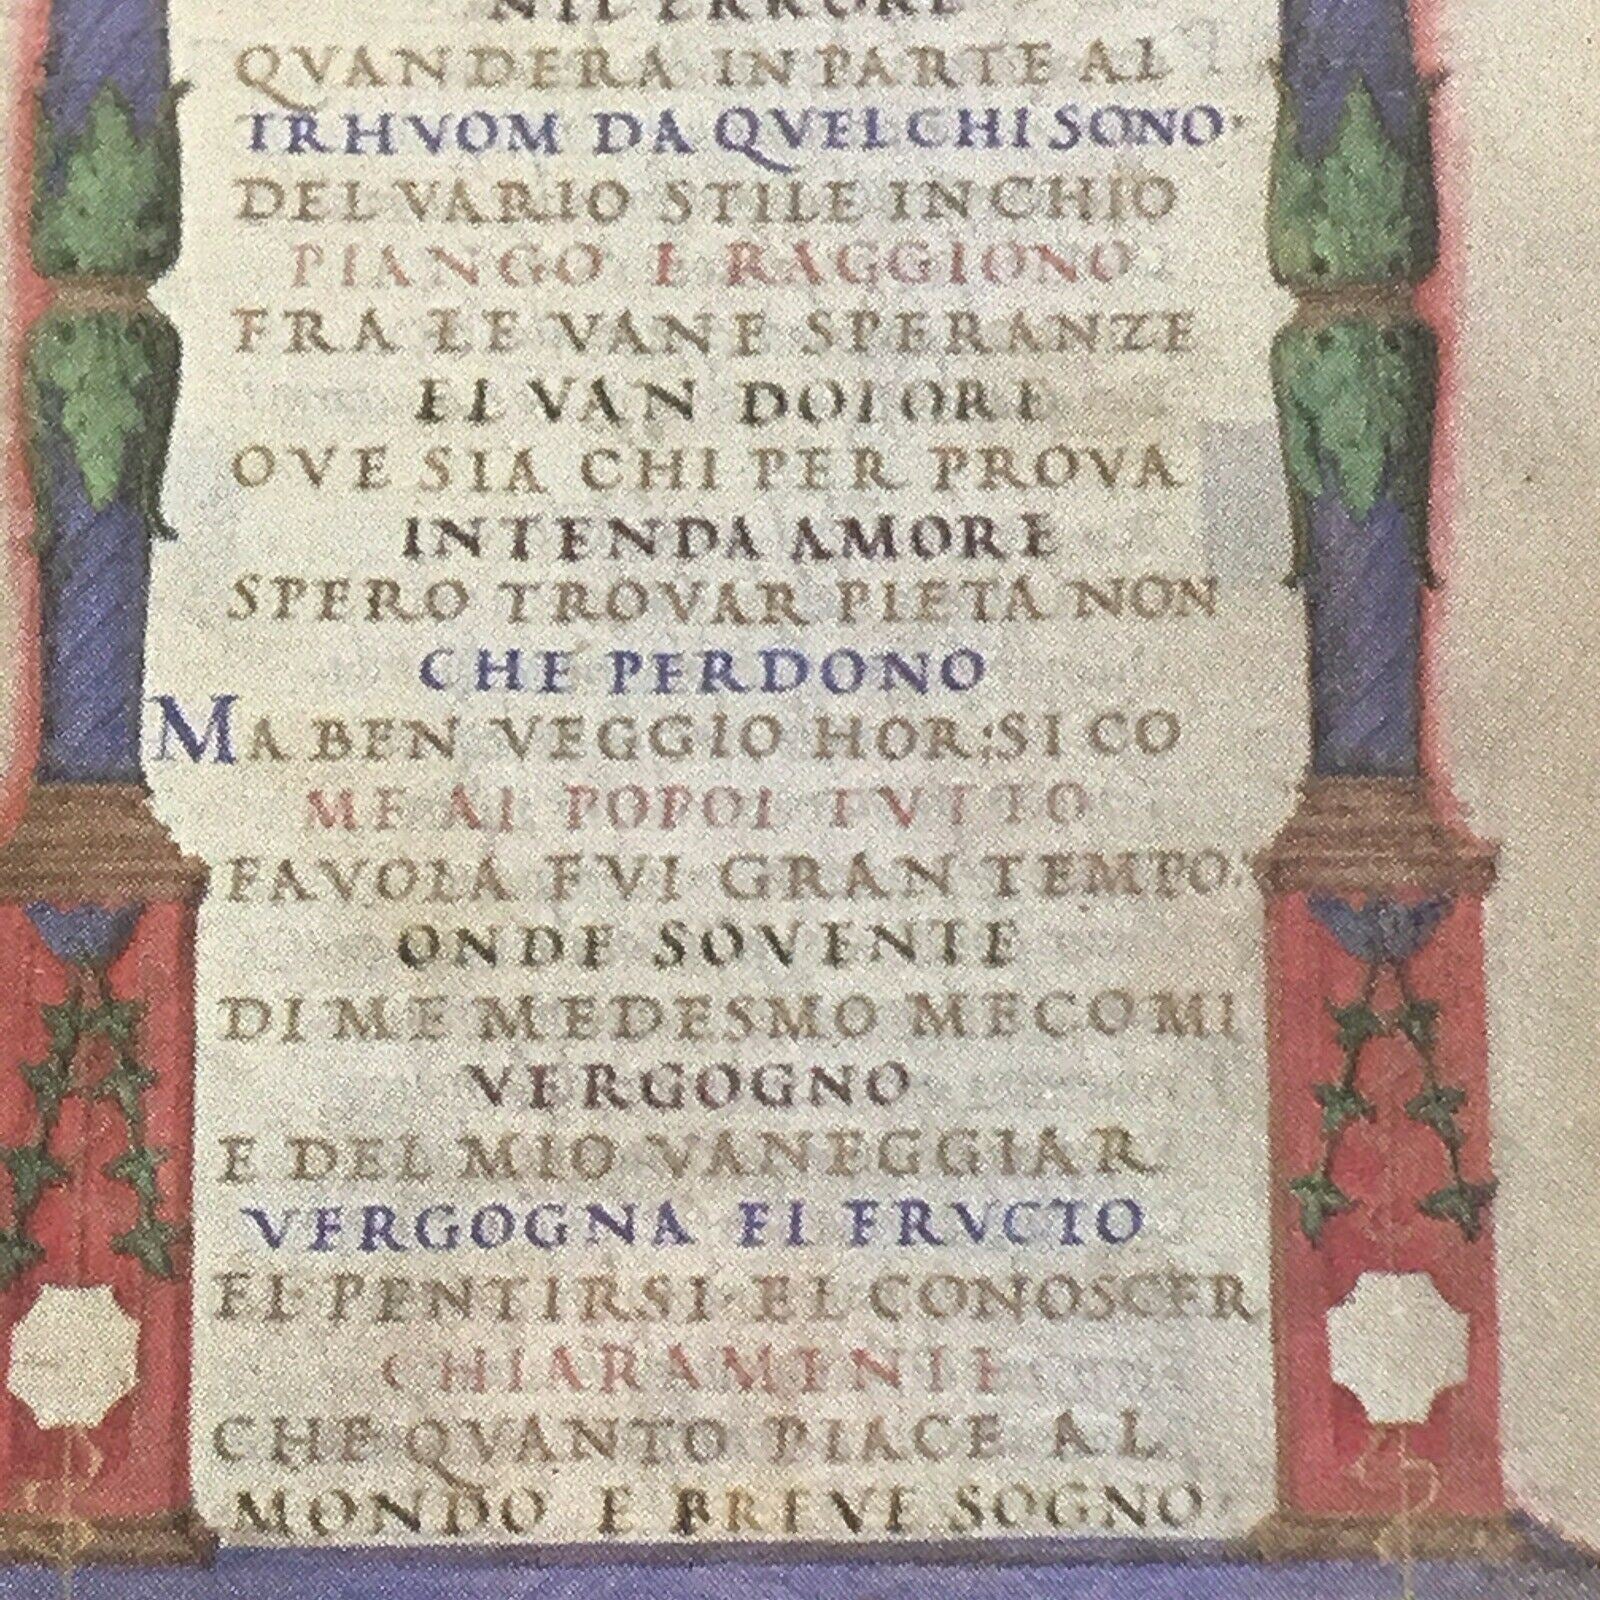 NIL ERRORE
QVANDERA IN PARTE AL
TRHVOM DA QVEL CHI SONO·
DEL VARIO STILE IN CHIO
PIANGO E RAGGIONO
FRA LE VANE SPERANZE
EL VAN DOLORE
OVE SIA CHI PER PROVA
INTENDA AMORE
SPERO TROVAR PIETA NON
CHE PERDONO
MA BEN VEGGIO HOR: SI CO
ME AL POPOL TVTTO
FAVOLA FVI GRAN TEMPO:
ONDE SOVENTE
DI ME MEDESMO MECO MI
VERGOGNO
E DEL MIO VANEGGIAR
VERGOGNA EL FRVCTO
EL PENTIRSI· EL CONOSCER
CHIARAMENTE
CHE QVANTO PIACE AL
MONDO E BREVE SOGNO·